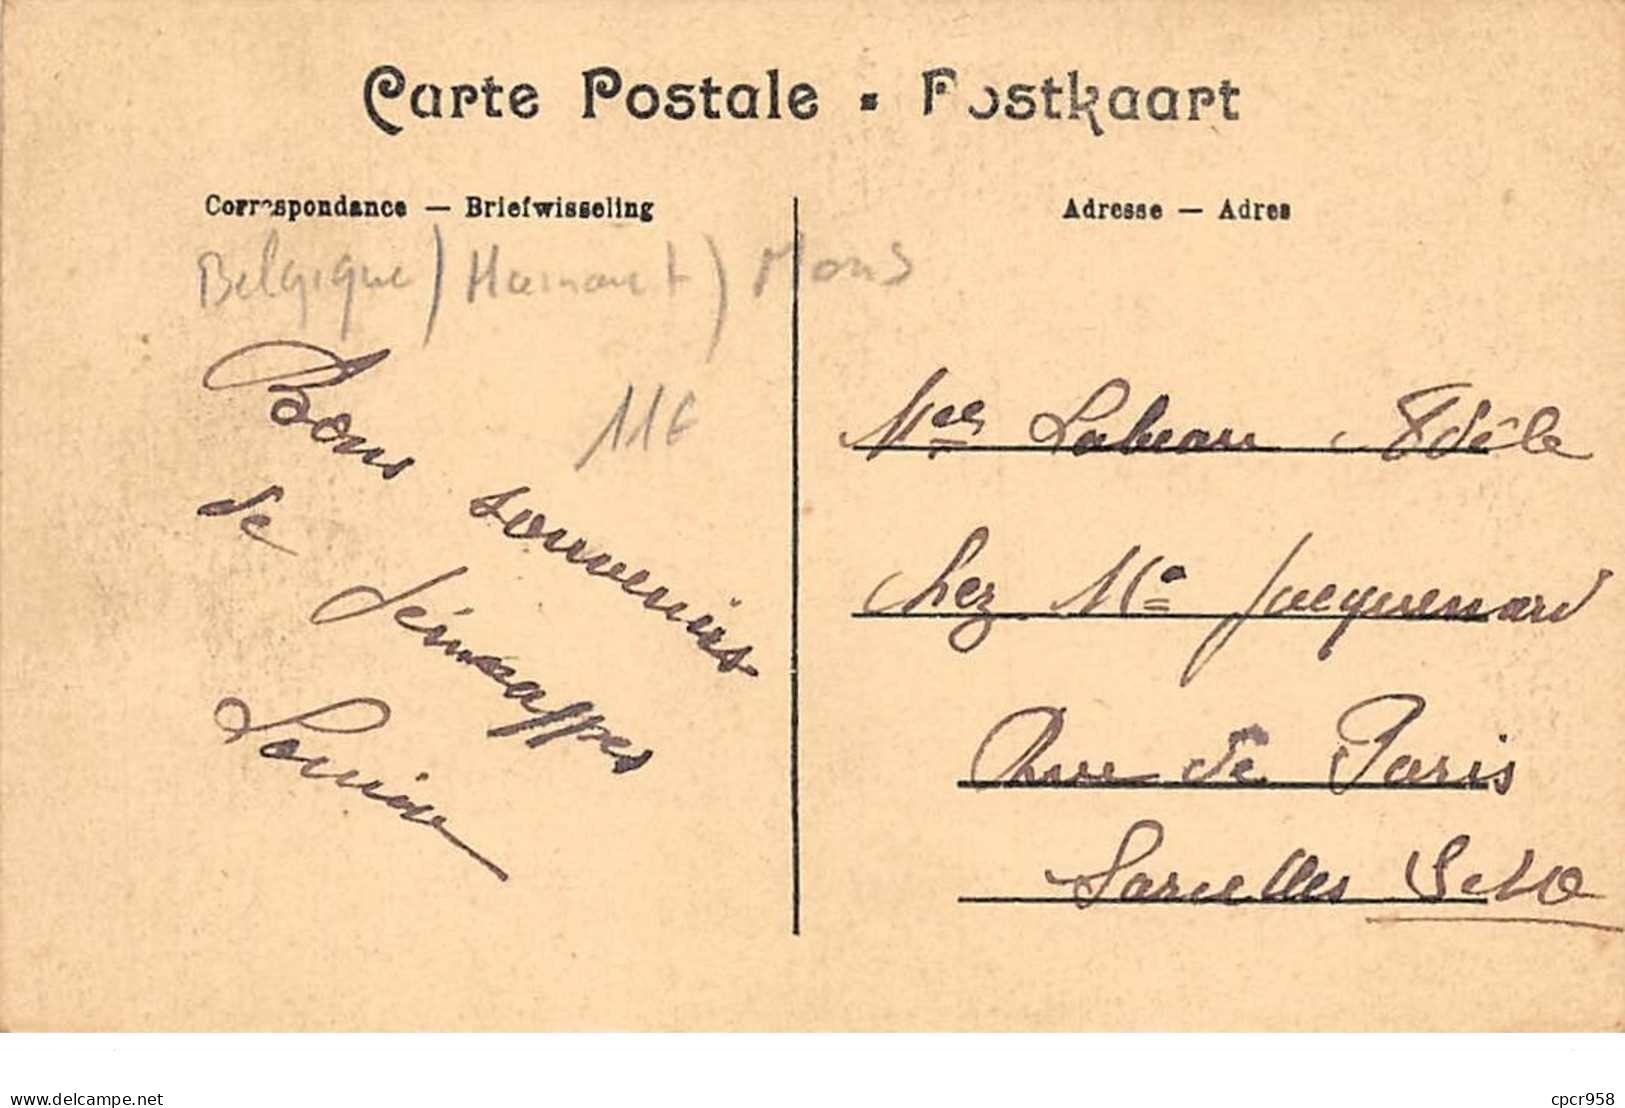 Carte Postale - Postkaart
Correspondance — Briefwisseling
Adresse — Adres
Belgique) Hainaut) Mons
11€
Bons souvenirs
de Jémmappes
Louise
Melle Labeau Adèle
chez Me Jacquemard
Rue de Paris
Sarcelles S et O
www.delcampe.net
cpcr958